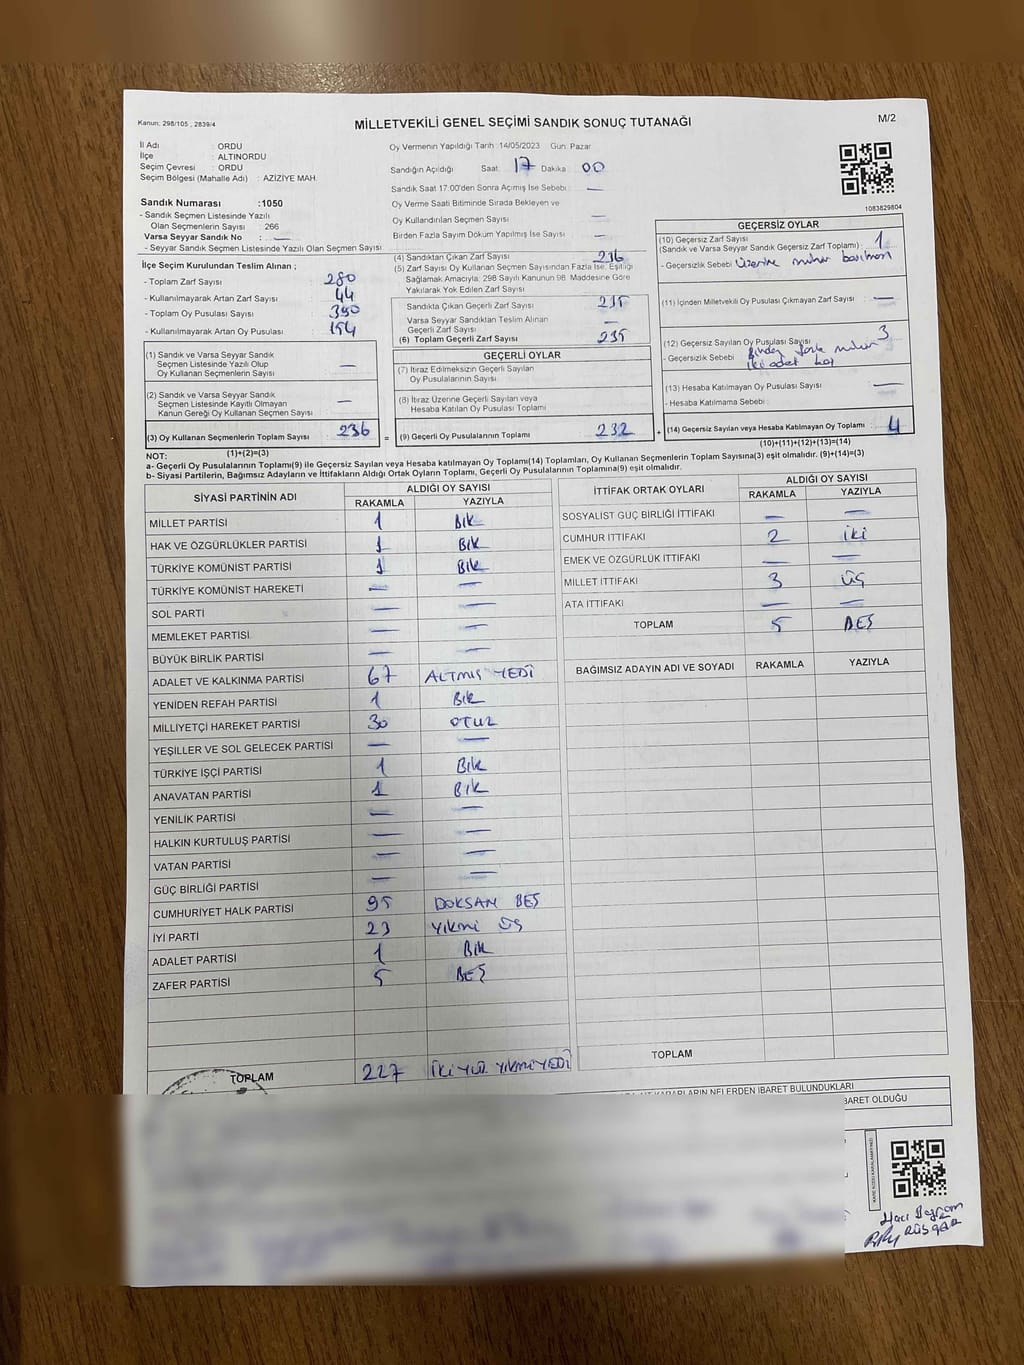 Kanun: 298/105 , 2839/4
MİLLETVEKİLİ GENEL SEÇİMİ SANDIK SONUÇ TUTANAĞI
M/2
İl Adı : ORDU
İlçe : ALTINORDU
Seçim Çevresi : ORDU
Seçim Bölgesi (Mahalle Adı) : AZİZİYE MAH.
Sandık Numarası :1050
- Sandık Seçmen Listesinde Yazılı
Olan Seçmenlerin Sayısı : 266
Varsa Seyyar Sandık No : —
- Seyyar Sandık Seçmen Listesinde Yazılı Olan Seçmen Sayısı
Oy Vermenin Yapıldığı Tarih :14/05/2023 Gün: Pazar
Sandığın Açıldığı Saat: 17 Dakika: 00
Sandık Saat 17:00'den Sonra Açılmış İse Sebebi : —
Oy Verme Saati Bitiminde Sırada Bekleyen ve
Oy Kullandırılan Seçmen Sayısı —
Birden Fazla Sayım Döküm Yapılmış İse Sayısı : —
1083829804
İlçe Seçim Kurulundan Teslim Alınan ;
- Toplam Zarf Sayısı : 280
- Kullanılmayarak Artan Zarf Sayısı : 44
- Toplam Oy Pusulası Sayısı : 390
- Kullanılmayarak Artan Oy Pusulası : 154
(1) Sandık ve Varsa Seyyar Sandık
Seçmen Listesinde Yazılı Olup
Oy Kullanan Seçmenlerin Sayısı : —
(2) Sandık ve Varsa Seyyar Sandık
Seçmen Listesinde Kayıtlı Olmayan
Kanun Gereği Oy Kullanan Seçmen Sayısı : —
(3) Oy Kullanan Seçmenlerin Toplam Sayısı : 236
(1)+(2)=(3)
(4) Sandıktan Çıkan Zarf Sayısı : 236
(5) Zarf Sayısı Oy Kullanan Seçmen Sayısından Fazla İse, Eşitliği
Sağlamak Amacıyla; 298 Sayılı Kanunun 98. Maddesine Göre
Yakılarak Yok Edilen Zarf Sayısı
Sandıkta Çıkan Geçerli Zarf Sayısı : 235
Varsa Seyyar Sandıktan Teslim Alınan
Geçerli Zarf Sayısı : —
(6) Toplam Geçerli Zarf Sayısı : 235
GEÇERLİ OYLAR
(7) İtiraz Edilmeksizin Geçerli Sayılan
Oy Pusulalarının Sayısı :
(8) İtiraz Üzerine Geçerli Sayılan veya
Hesaba Katılan Oy Pusulası Toplamı :
= (9) Geçerli Oy Pusulalarının Toplamı : 232
GEÇERSİZ OYLAR
(10) Geçersiz Zarf Sayısı
(Sandık ve Varsa Seyyar Sandık Geçersiz Zarf Toplamı) : 1
- Geçersizlik Sebebi : Üzerine mühür basılması
(11) İçinden Milletvekili Oy Pusulası Çıkmayan Zarf Sayısı : —
(12) Geçersiz Sayılan Oy Pusulası Sayısı : 3
- Geçersizlik Sebebi : Birden fazla mühür
iki adet
(13) Hesaba Katılmayan Oy Pusulası Sayısı : —
- Hesaba Katılmama Sebebi :
+ (14) Geçersiz Sayılan veya Hesaba Katılmayan Oy Toplamı : 4
(10)+(11)+(12)+(13)=(14)
NOT:
a- Geçerli Oy Pusulalarının Toplamı(9) ile Geçersiz Sayılan veya Hesaba katılmayan Oy Toplamı(14) Toplamları, Oy Kullanan Seçmenlerin Toplam Sayısına(3) eşit olmalıdır. (9)+(14)=(3)
b- Siyasi Partilerin, Bağımsız Adayların ve İttifakların Aldığı Ortak Oyların Toplamı, Geçerli Oy Pusulalarının Toplamına(9) eşit olmalıdır.
SİYASİ PARTİNİN ADI ALDIĞI OY SAYISI
RAKAMLA YAZIYLA
MİLLET PARTİSİ 1 BİR
HAK VE ÖZGÜRLÜKLER PARTİSİ 1 BİR
TÜRKİYE KOMÜNİST PARTİSİ 1 BİR
TÜRKİYE KOMÜNİST HAREKETİ — —
SOL PARTİ — —
MEMLEKET PARTİSİ — —
BÜYÜK BİRLİK PARTİSİ — —
ADALET VE KALKINMA PARTİSİ 67 ALTMIŞ YEDİ
YENİDEN REFAH PARTİSİ 1 BİR
MİLLİYETÇİ HAREKET PARTİSİ 30 OTUZ
YEŞİLLER VE SOL GELECEK PARTİSİ — —
TÜRKİYE İŞÇİ PARTİSİ 1 BİR
ANAVATAN PARTİSİ 1 BİR
YENİLİK PARTİSİ — —
HALKIN KURTULUŞ PARTİSİ — —
VATAN PARTİSİ — —
GÜÇ BİRLİĞİ PARTİSİ — —
CUMHURİYET HALK PARTİSİ 95 DOKSAN BEŞ
İYİ PARTİ 23 YİRMİ ÜÇ
ADALET PARTİSİ 1 BİR
ZAFER PARTİSİ 5 BEŞ
TOPLAM 227 İKİ YÜZ YİRMİYEDİ
İTTİFAK ORTAK OYLARI ALDIĞI OY SAYISI
RAKAMLA YAZIYLA
SOSYALİST GÜÇ BİRLİĞİ İTTİFAKI — —
CUMHUR İTTİFAKI 2 iki
EMEK VE ÖZGÜRLÜK İTTİFAKI — —
MİLLET İTTİFAKI 3 ÜÇ
ATA İTTİFAKI — —
TOPLAM 5 BEŞ
BAĞIMSIZ ADAYIN ADI VE SOYADI RAKAMLA YAZIYLA
TOPLAM
KARARLARIN NELERDEN İBARET BULUNDUKLARI
İBARET OLDUĞU
Hacı Bayram
RÜZGAR